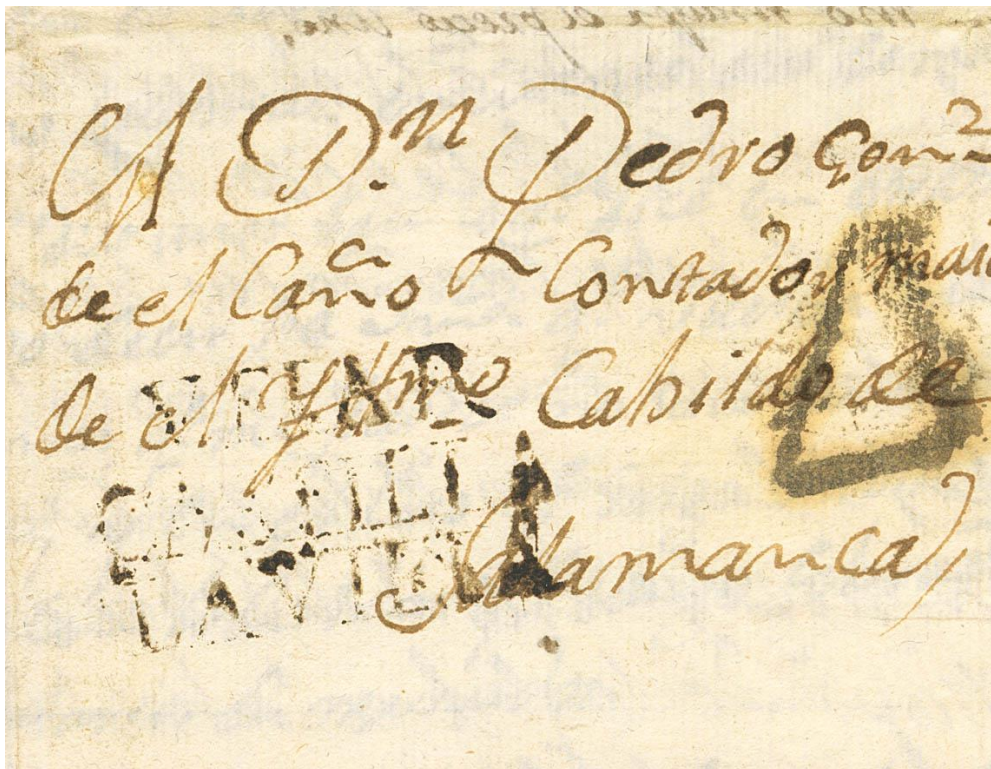 A D.n Pedro Gonz
de el Caño Contador maio
de el Yltmo Cabildo de
Salamanca
VEJAR
CASTILLA
LA VIEJA